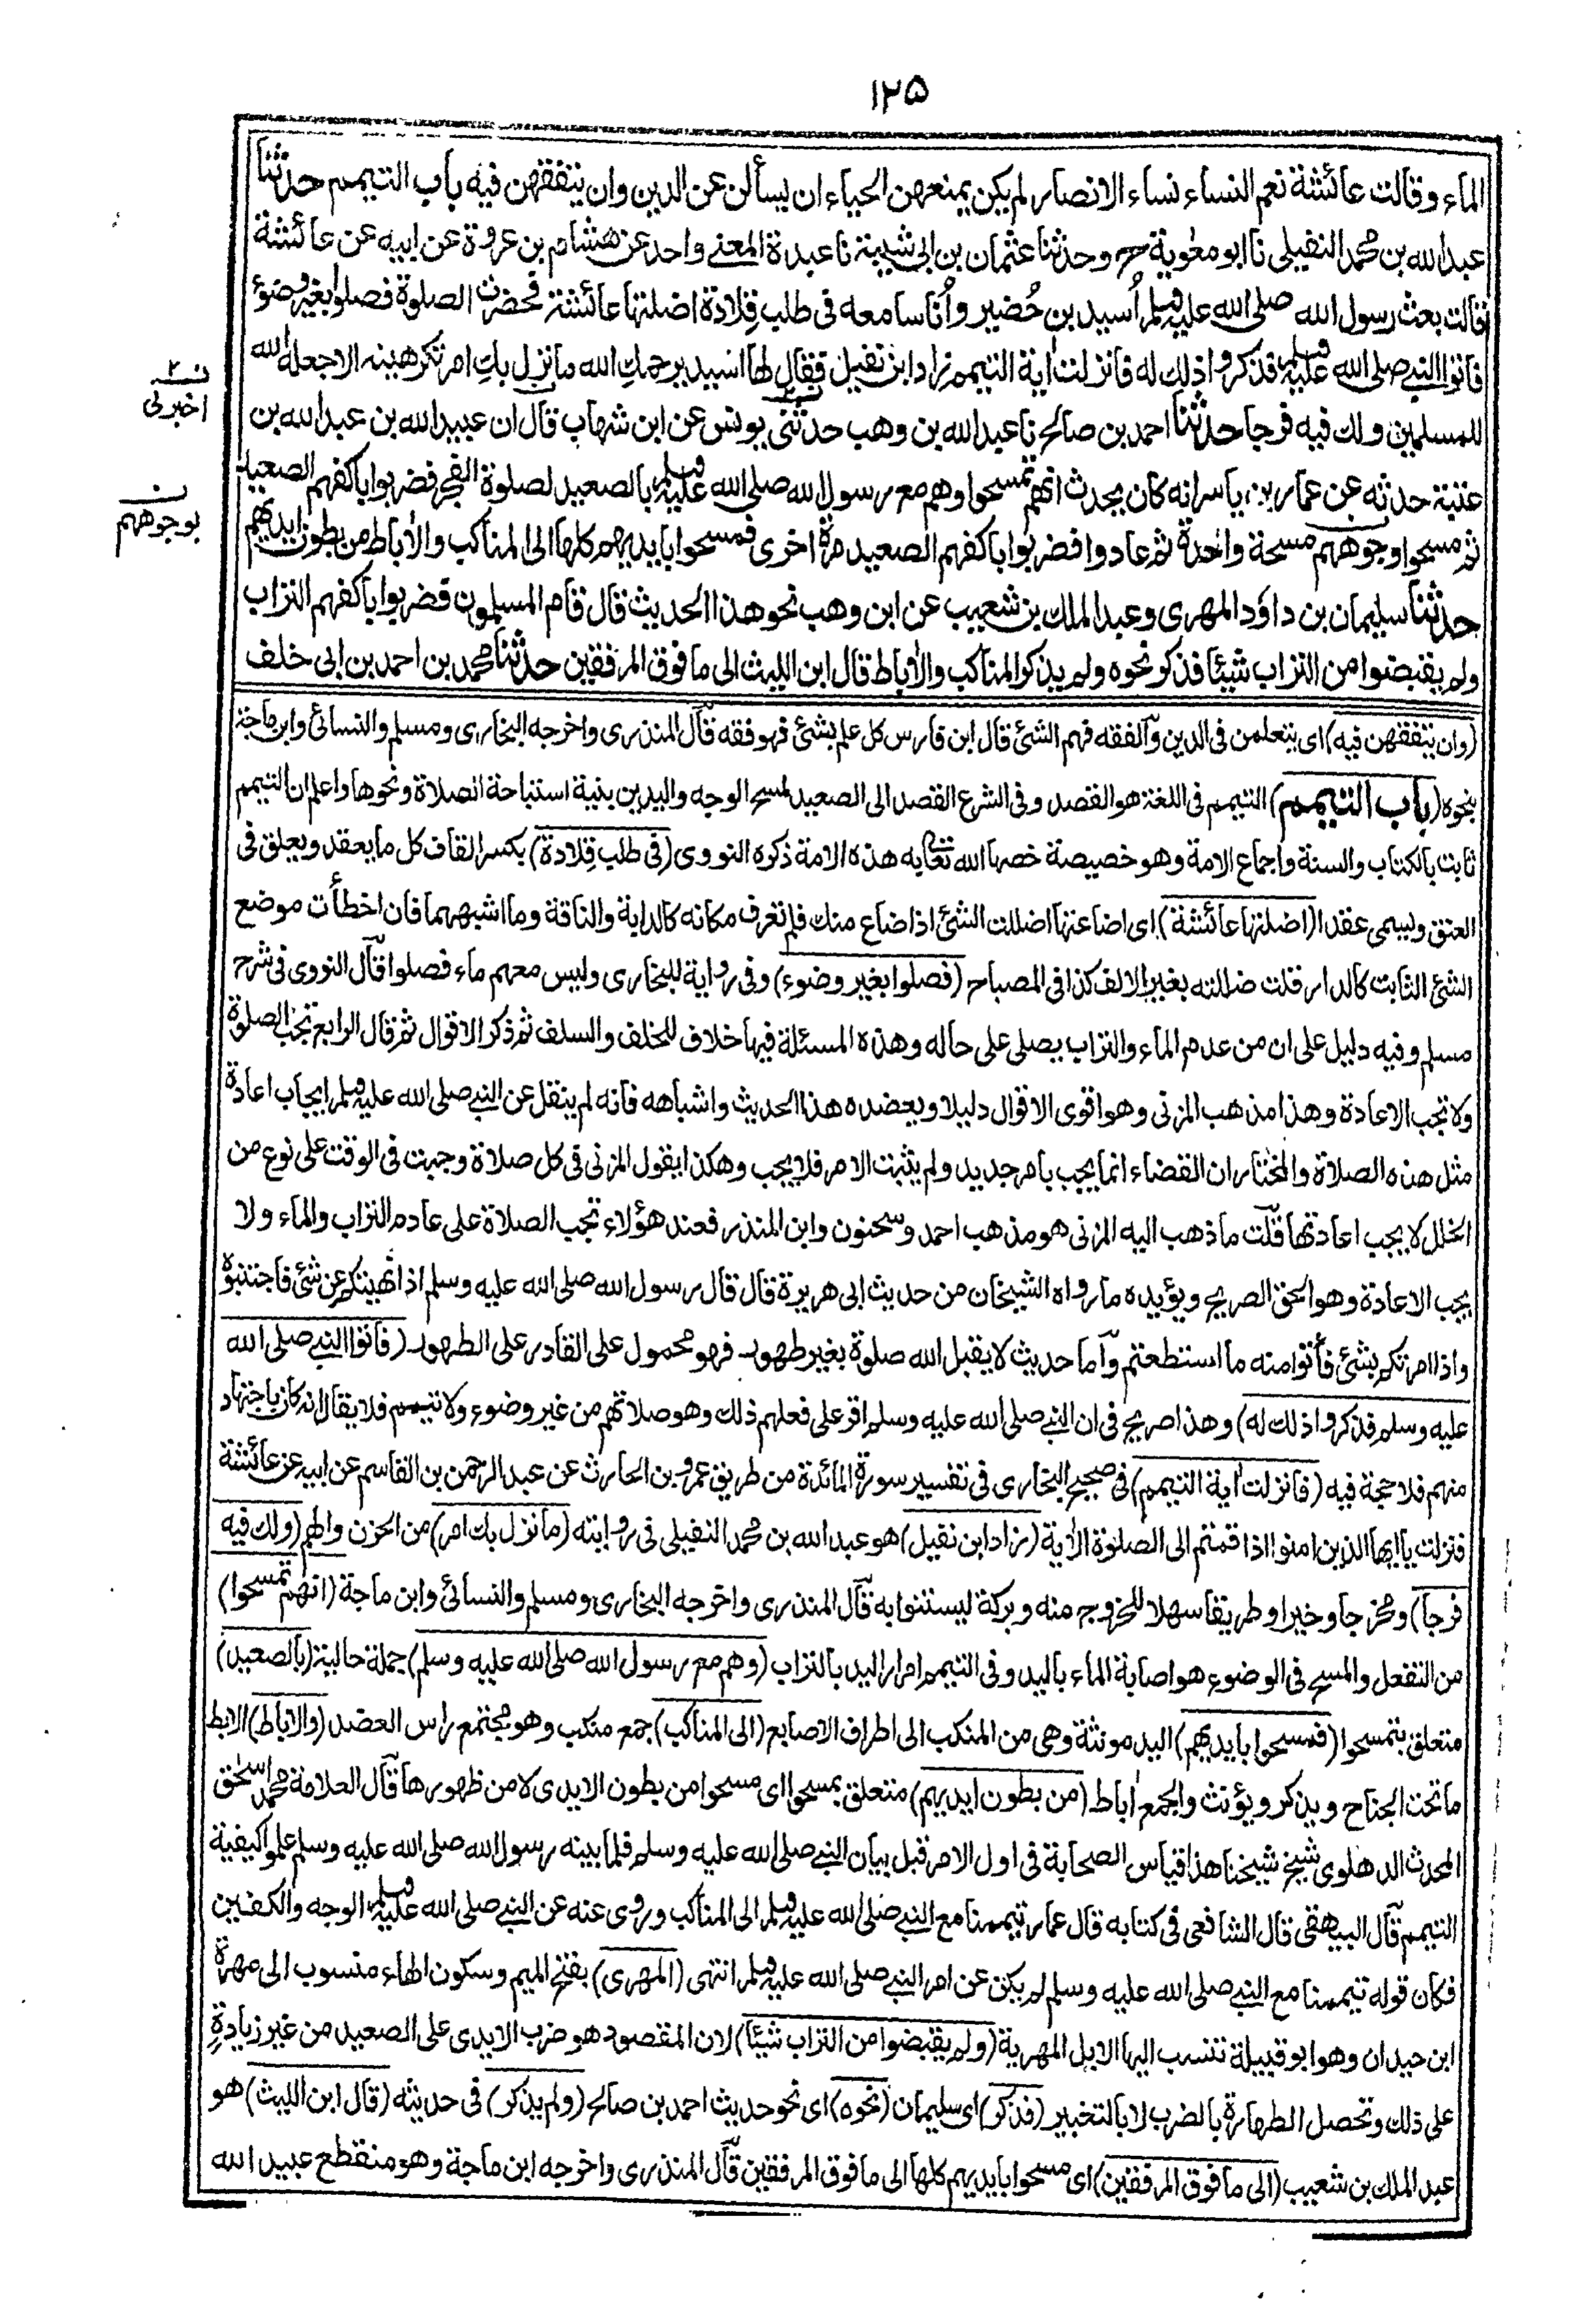 ۱۲۵
الماء وقالت عائشة نعم النساء نساء الانصار لم يكن يمنعهن الحياء ان يسألن عن الدين وان يتفقهن فيه باب التيمم حدثنا
عبد الله بن محمد النفيلي نا ابو معٰوية ح وحدثنا عثمان بن ابي شيبة نا عبدة المعنى واحد عن هشام بن عروة عن ابيه عن عائشة
قالت بعث رسول الله صلى الله عليه وسلم اُسيد بن حُضير واُناسا معه في طلب قِلادة اضلتها عائشة فحضرت الصلوة فصلوا بغير وضوء
فاتوا النبي صلى الله عليه وسلم فذكروا ذلك له فانزلت اٰية التيمم زاد ابن نفيل فقال لها اسيد يرحمكِ الله ما نزل بكِ امر تكرهينه الا جعله الله
للمسلمين ولك فيه فرجا حدثنا احمد بن صالح نا عبد الله بن وهب حدثني يونس عن ابن شهاب قال ان عبيد الله بن عبد الله بن
ن ٢ اخبرني
عتبة حدثه عن عمار بن ياسر انه كان يحدث انهم تمسحوا وهم مع رسول الله صلى الله عليه وسلم بالصعيد لصلوة الفجر فضربوا باكفهم الصعيد
ثم مسحوا وجوههم مسحة واحدة ثم عادوا فضربوا باكفهم الصعيد مرة اخرى فمسحوا بايديهم كلها الى المناكب والاٰباط من بطون ايديهم
ن بوجوههم
حدثنا سليمان بن داؤد المهري وعبد الملك بن شعيب عن ابن وهب نحو هذا الحديث قال قام المسلمون فضربوا باكفهم التراب
ولم يقبضوا من التراب شيئا فذكر نحوه ولم يذكر المناكب والاٰباط قال ابن الليث الى ما فوق المرفقين حدثنا محمد بن احمد بن ابي خلف
(وان يتفقهن فيه) اى يتعلمن في الدين والفقه فهم الشئ قال ابن فارس كل علم بشئ فهو فقه قال المنذرى واخرجه البخارى ومسلم والنسائى وابن ماجة
بنحوه (باب التيمم) التيمم في اللغة هو القصد وفي الشرع القصد الى الصعيد لمسح الوجه واليدين بنية استباحة الصلاة ونحوها واعلم ان التيمم
ثابت بالكتاب والسنة واجماع الامة وهو خصيصة خصها الله تعالى به هذه الامة ذكره النووى (في طلب قِلادة) بكسر القاف كل ما يعقد ويعلق في
العنق ويسمى عقدا (اضلتها عائشة) اى اضاعتها اضللت الشئ اذا ضاع منك فلم تعرف مكانه كالدابة والناقة وما اشبههما فان اخطأت موضع
الشئ الثابت كالدار قلت ضللته بغير الالف كذا في المصباح (فصلوا بغير وضوء) وفي رواية للبخارى وليس معهم ماء فصلوا قال النووى في شرح
مسلم وفيه دليل على ان من عدم الماء والتراب يصلى على حاله وهذه المسئلة فيها خلاف للخلف والسلف ثم ذكر الاقوال ثم قال الرابع تجب الصلوة
ولا تجب الاعادة وهذا مذهب المزنى وهو اقوى الاقوال دليلا ويعضده هذا الحديث واشباهه فانه لم ينقل عن النبي صلى الله عليه وسلم ايجاب اعادة
مثل هذه الصلاة والمختار ان القضاء انما يجب بامر جديد ولم يثبت الامر فلا يجب وهكذا يقول المزنى في كل صلاة وجبت في الوقت على نوع من
الخلل لا يجب اعادتها قلت ما ذهب اليه المزنى هو مذهب احمد وسحنون وابن المنذر فعند هؤلاء تجب الصلاة على عادم التراب والماء ولا
يجب الاعادة وهو الحق الصريح ويؤيده ما رواه الشيخان من حديث ابى هريرة قال قال رسول الله صلى الله عليه وسلم اذا نهيتكم عن شئ فاجتنبوه
واذا امرتكم بشئ فأتوا منه ما استطعتم واما حديث لا يقبل الله صلوة بغير طهور فهو محمول على القادر على الطهور (فاتوا النبي صلى الله
عليه وسلم فذكروا ذلك له) وهذا صريح في ان النبي صلى الله عليه وسلم اقر على فعلهم ذلك وهو صلاتهم من غير وضوء ولا تيمم فلا يقال انه كان باجتهاد
منهم فلا حجة فيه (فانزلت اٰية التيمم) في صحيح البخارى في تفسير سورة المائدة من طريق عمرو بن الحارث عن عبد الرحمن بن القاسم عن ابيه عن عائشة
فنزلت يا ايها الذين امنوا اذا قمتم الى الصلوة الاٰية (زاد ابن نفيل) هو عبد الله بن محمد النفيلى في روايته (ما نزل بك امر) من الحزن والهم (ولك فيه
فرجا) ومخرجا وخيرا وطريقا سهلا للخروج منه وبركة ليستنوا به قال المنذرى واخرجه البخارى ومسلم والنسائى وابن ماجة (انهم تمسحوا)
من التفعل والمسح في الوضوء هو اصابة الماء باليد وفي التيمم امرار اليد بالتراب (وهم مع رسول الله صلى الله عليه وسلم) جملة حالية (بالصعيد)
متعلق بتمسحوا (فمسحوا بايديهم) اليد مونثة وهى من المنكب الى اطراف الاصابع (الى المناكب) جمع منكب وهو مجتمع راس العضد (والاباط) الابط
ما تحت الجناح ويذكر ويؤنث والجمع اٰباط (من بطون ايديهم) متعلق بمسحوا اى مسحوا من بطون الايدى لا من ظهورها قال العلامة محمد اسحٰق
المحدث الدهلوى شيخ شيخنا هذا قياس الصحابة في اول الامر قبل بيان النبي صلى الله عليه وسلم فلما بينه رسول الله صلى الله عليه وسلم علموا كيفية
التيمم قال البيهقى قال الشافعى في كتابه قال عمار تيممنا مع النبي صلى الله عليه وسلم الى المناكب وروى عنه عن النبي صلى الله عليه وسلم الوجه والكفين
فكان قوله تيممنا مع النبي صلى الله عليه وسلم لم يكن عن امر النبي صلى الله عليه وسلم انتهى (المهرى) بفتح الميم وسكون الهاء منسوب الى مهرة
ابن حيدان وهو ابو قبيلة تنسب اليها الابل المهرية (ولم يقبضوا من التراب شيئا) لان المقصود هو ضرب الايدى على الصعيد من غير زيادةٍ
على ذلك وتحصل الطهارة بالضرب لا بالتخبير (فذكر) اى سليمان (نحوه) اى نحو حديث احمد بن صالح (ولم يذكر) في حديثه (قال ابن الليث) هو
عبد الملك بن شعيب (الى ما فوق المرفقين) اى مسحوا بايديهم كلها الى ما فوق المرفقين قال المنذرى واخرجه ابن ماجة وهو منقطع عبيد الله